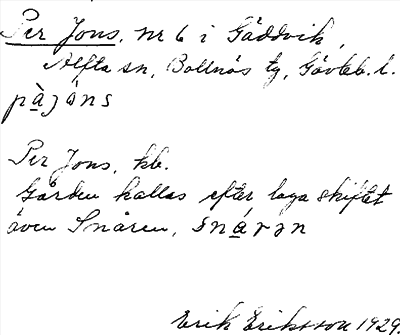 Per Jons, nr 6 i Gäddvik,
Alfta sn, Bollnäs tg, Gävleb. l.
pà̱jǝ́ns
Per Jons, kb.
Gården kallas efter laga skiftet
även Snåren, sná̱rǝn
Erik Eriksson 1929.